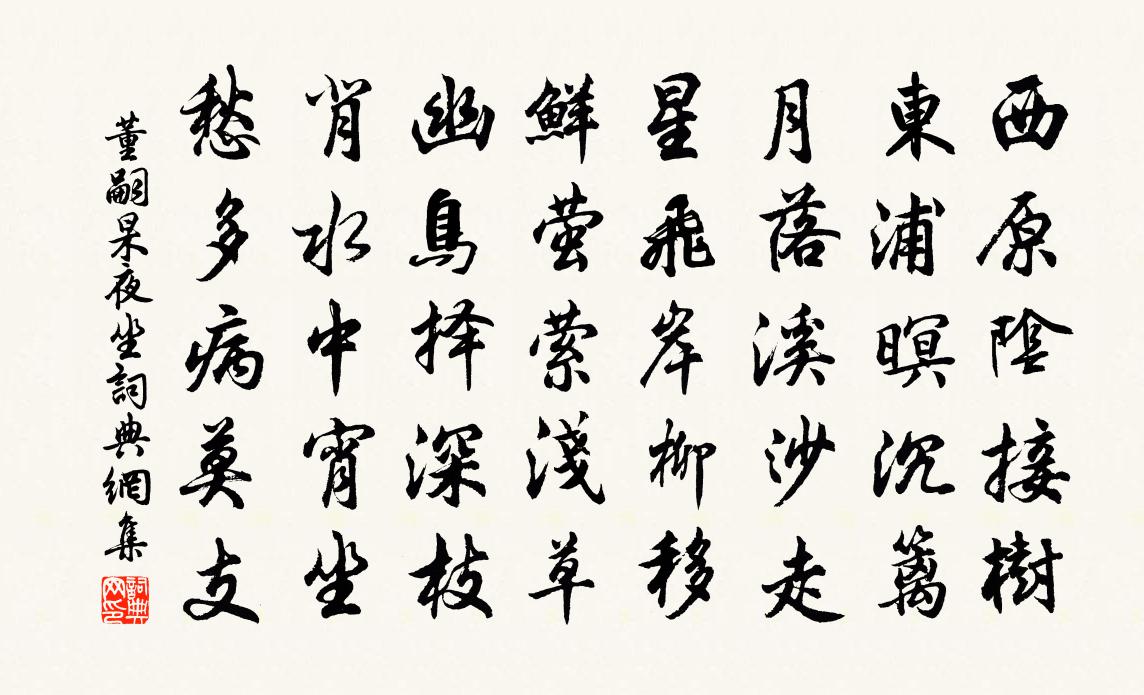 西原陰接樹
東浦暝沉篱
月落溪沙走
星飛岸柳移
鮮萤萦淺草
幽鳥择深枝
肖水中宵坐
愁多病莫支
董嗣杲夜坐詞典網集
詞典網印